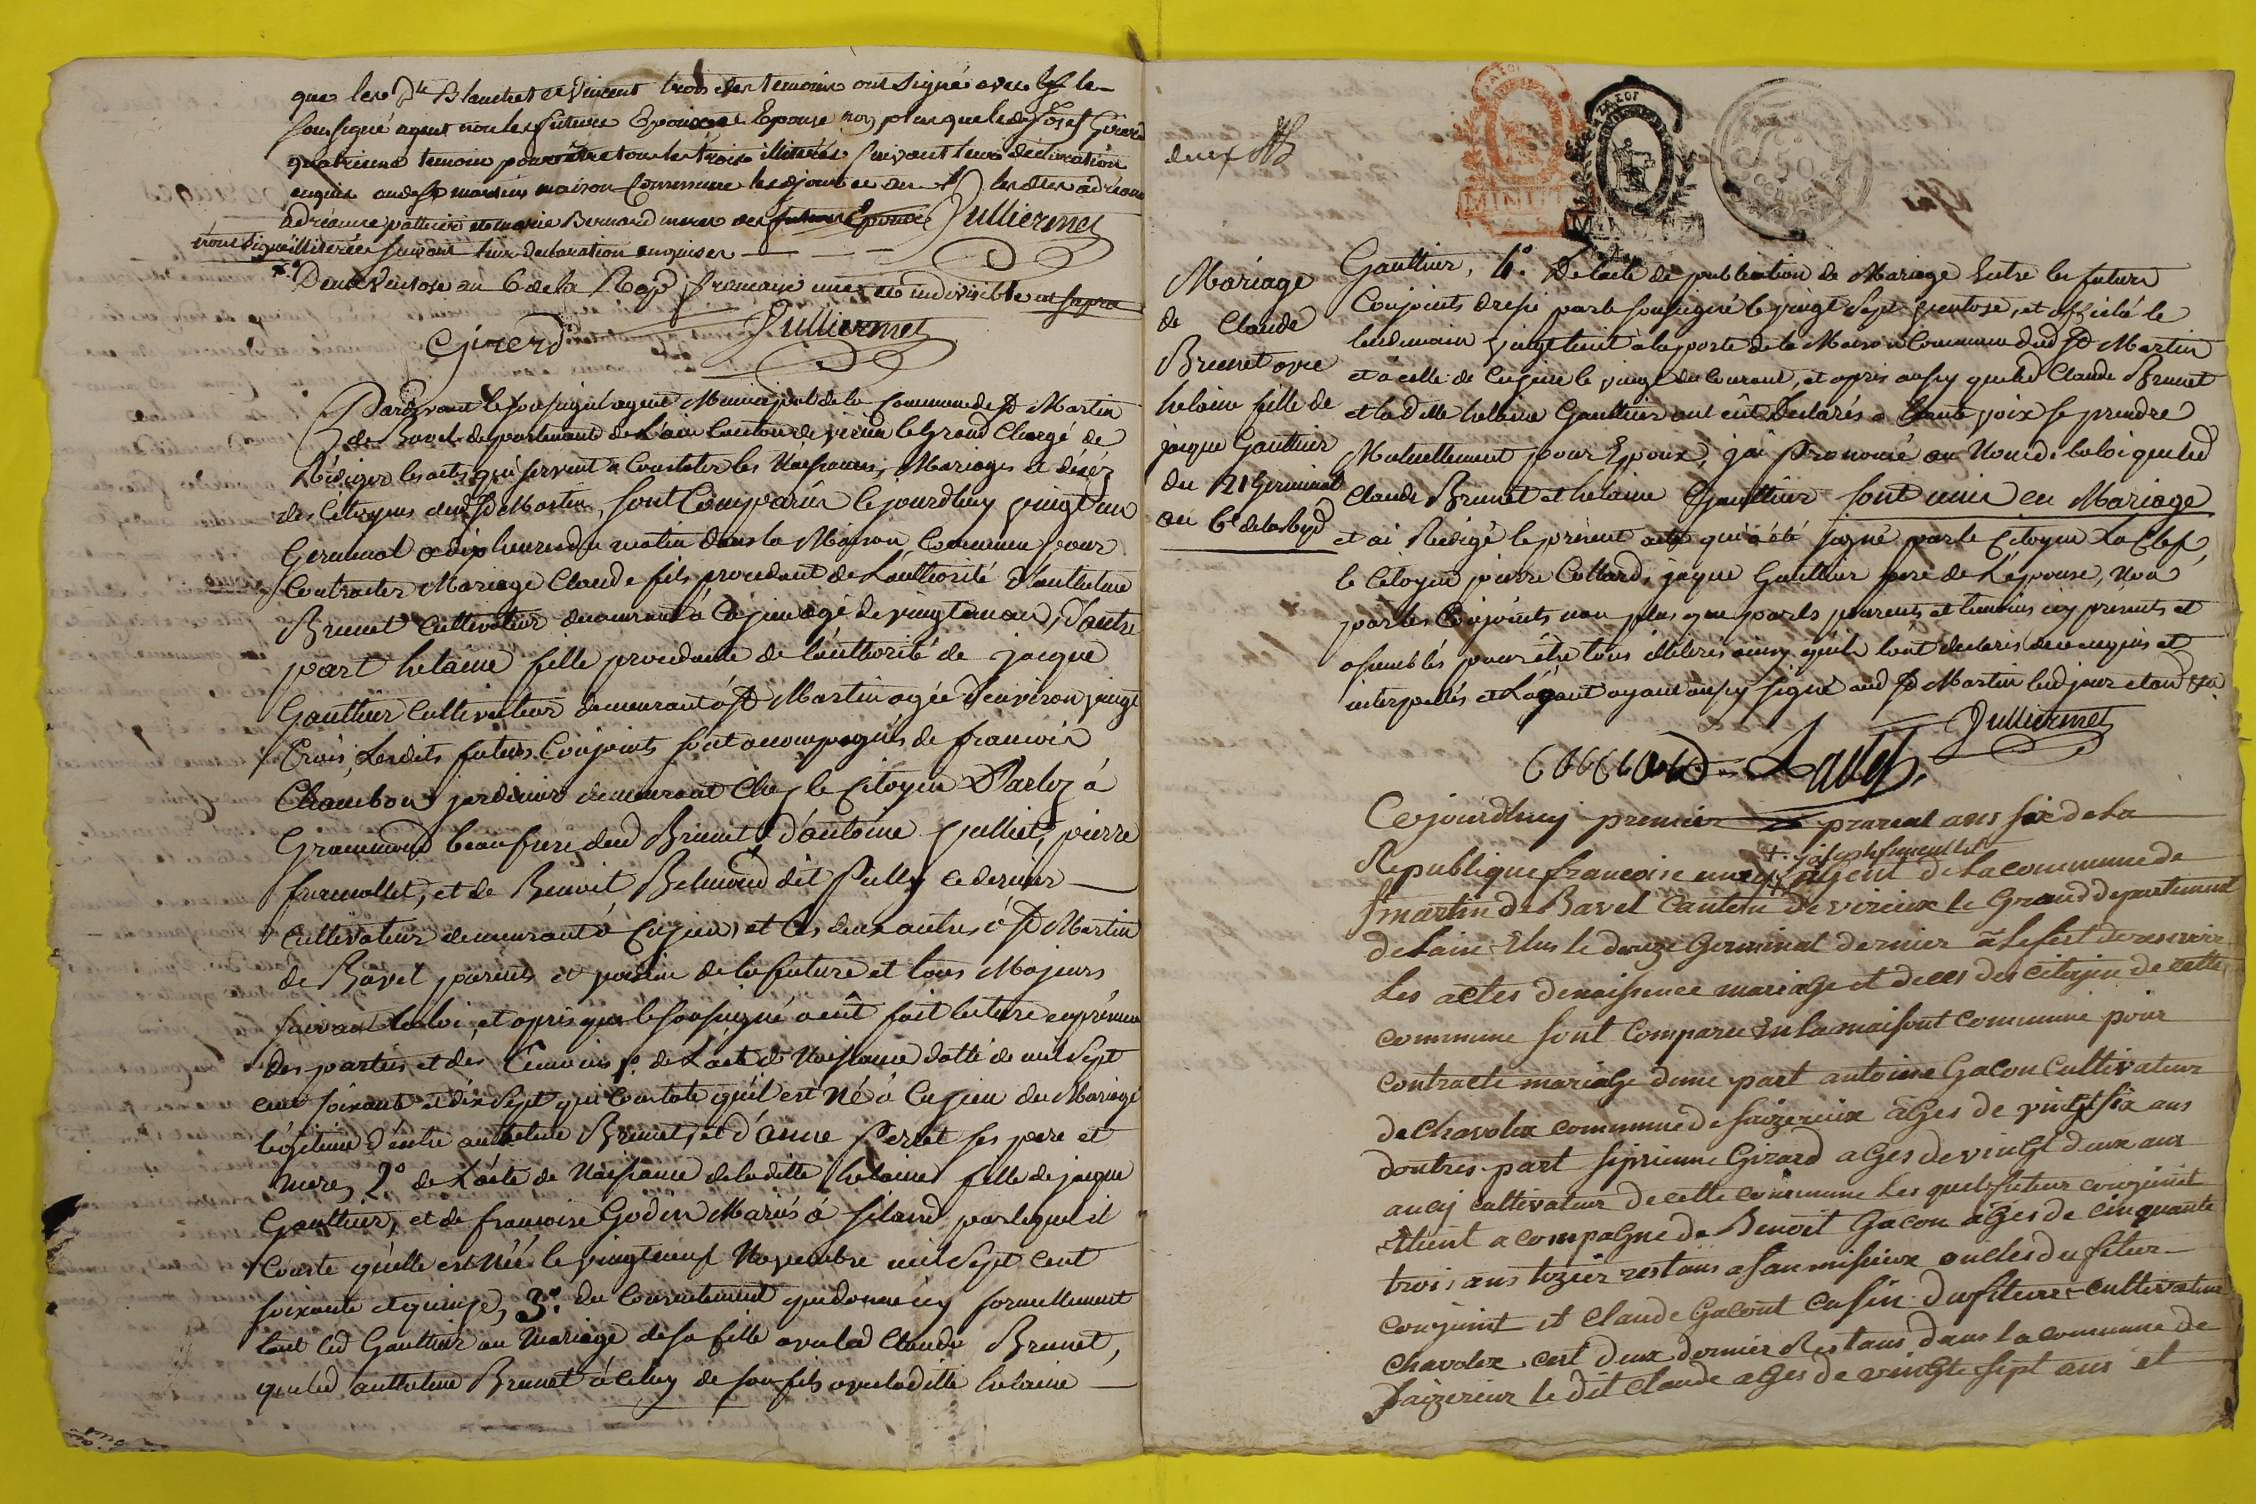 que les dts Blanchet et Vincent trois des temoins ont signé avec le
soussigné agent non les futurs Epoux et Epouse non plus que led Josef Girerd
quatrieme temoin pour être tous les trois illiterés suivant leurs declaration
enquis aud St martin maison Commune lesd jour et an les dites adrienne
adrienne pottier et marie Bernard meres des futurs Epoux Julliermet
n'ont signé illiterées suivant leur declaration enquises
Deux Ventose an 6 de la Rep francaise une et indivisible ut supra
Girerd Julliermet
Pardevant le soussigné agent Municipal de la Commune de St Martin
de Bavel departement de L'ain Canton de virieu le Grand Chargé de
Rédiger les actes qui servent à Constater les Naissances, Mariages et décéz
des Citoyens dud St Martin, sont Comparus le jourdhuy vingt un
Germinal a dix heures du matin dans la Maison Commune pour
Contracter Mariage Claude fils procedant de L'authorité d'anthelme
Brunet Cultivateur demeurant à Cuzieu agé de vingt un ans, d'autre
part helaine fille procedante de l'authorité de jacque
Gauthier Cultivateur demeurant à St Martin agée d'environ vingt
trois, Lesdits futurs Conjoints sont accompagnés de francois
Chambon jardinier demeurant Chez le Citoyen Darloz à
Grammond beaufrere dud Brunet, d'antoine Julliet, pierre
framollet, et de Benoit Belmond dit Pully ce dernier
Cultivateur demeurant à Cuzieu, et les deux autres à St Martin
de Bavel parents et voisins de la future et tous Majeurs
suivant la loi, et apres que le soussigné a eût fait lecture en présence
des parties et des temoins 1° de L'acte de Naissance datté de mil sept
cent soixante et dix sept qui Constate qu'il est Né à Cuzieu du Mariage
légitime d'entre anthelme Brunet, et d'anne Perret ses pere et
mere, 2° de L'acte de Naissance de laditte helaine fille de jacque
Gauthier, et de francoise Godin Mariés à par lequel il
Conste qu'elle est Née le vingt neuf Novembre mil sept cent
soixante et quinze, 3° du Consentement que donne icy formellement
tant led Gauthier au Mariage de sa fille avec led Claude Brunet,
que led anthelme Brunet à celuy de son fils avec laditte helaine
deux
Mariage
de Claude
Brunet avec
helaine fille de
jacque Gauthier
du 21 Germinal
an 6e de la Repd
Gauthier, 4° De l'acte de publication de Mariage Entre les futurs
Conjoints dressé par le soussigné le vingt sept ventose, et affiché le
lendemain vingt huit à la porte de la Maison Commune dud St Martin
et à celle de Cuzieu le vingt du Courant, et apres aussy que led Claude Brunet
et lad elle helaine Gauthier ont eût declarés a haute voix se prendre
Mutuellement pour Epoux, j'ai prononcé au Nom de la loi que led
Claude Brunet et helaine Gauthier sont unis en Mariage
et ai Redigé le présent acte qui a été signé par le Citoyen
le Citoyen pierre Collard, jaque Gauthier pere de L'épouse, Non
par les Conjoints non plus que par les parents et temoins icy présents et
assemblés pour être tous illiterés ainsy qu'ils l'ont declarés de ce enquis et
interpellés et L'agent ayant aussy signé aud St Martin led jour et an
Julliermet
Collard
Cejourdhuy premier prairial ans six de la
Republique francoise une agent de la commune de
st martin de Bavel Canton de virieux le Grand departement
de Lain Elus le douze Germinal dernier
Les actes de naissance mariage et deces des citoyen de cette
commune sont comparu en la maisont commune pour
contracte mariage dune part antoine Gacon Cultivateur
de chavolex commune de ages de vingt six ans
doutres part siprienne Girard ages de vingt deux ans
aucy cultivateur de cette commune Les quels futur conjoint
Etient a compagne de Benoit Gacon ages de cinquante
trois ans restans oncles du futur
conjoint et Claude Gacont cusin du future cultivateur
chavolex cest deux dernier Restans dans la commune de
le dit Claude ages de vingte sept ans et